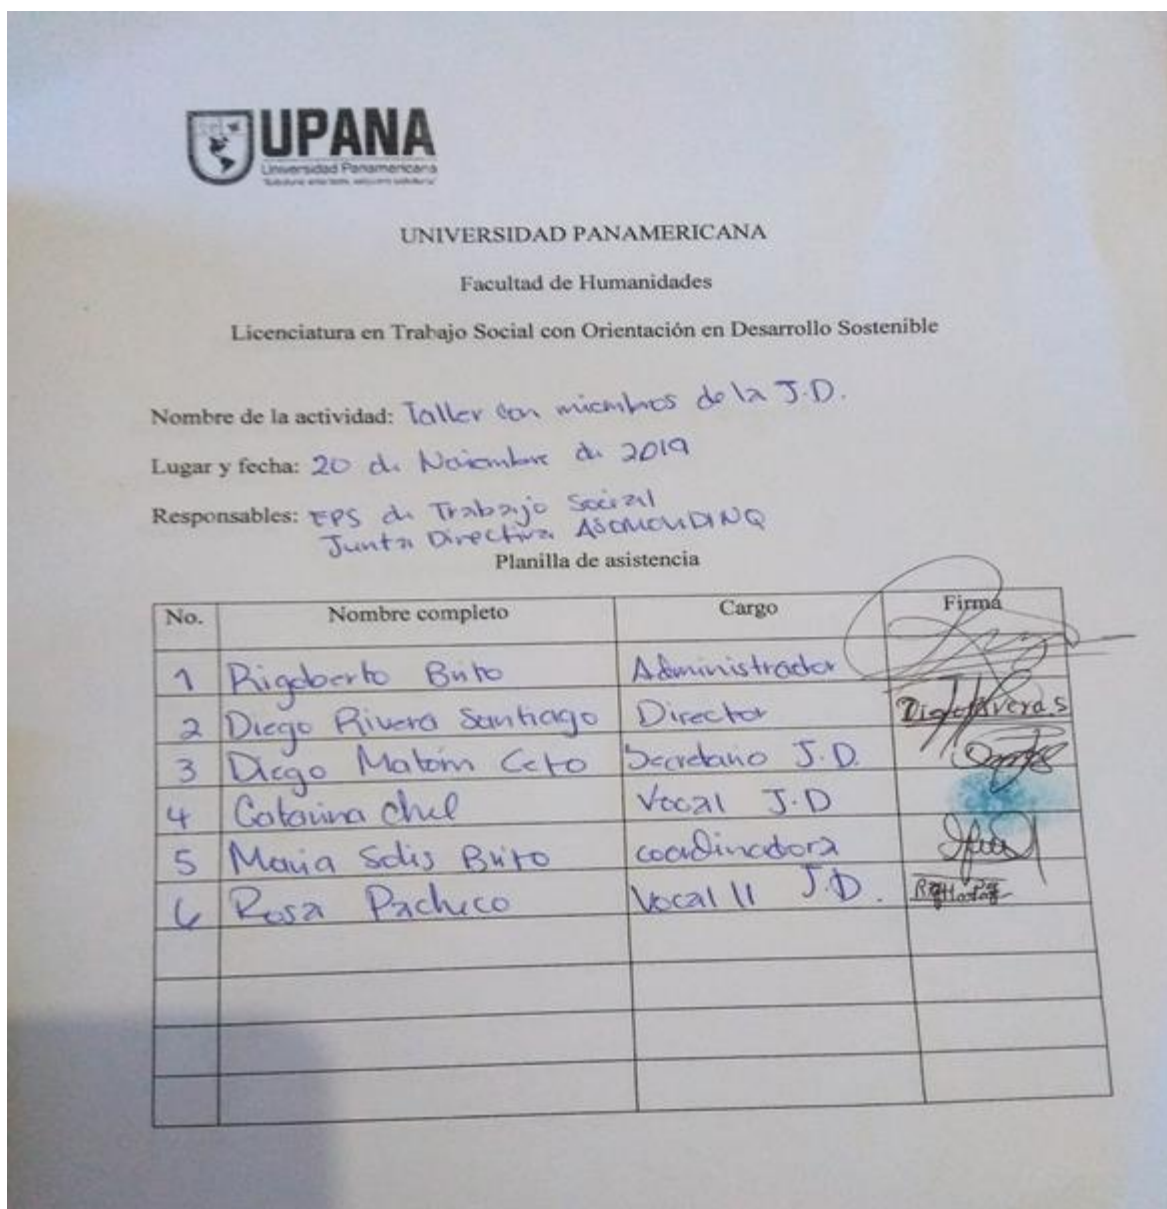 UPANA
Universidad Panamericana
UNIVERSIDAD PANAMERICANA
Facultad de Humanidades
Licenciatura en Trabajo Social con Orientación en Desarrollo Sostenible
Nombre de la actividad: Taller con miembros de la J.D.
Lugar y fecha: 20 de Noviembre de 2019
Responsables: EPS de Trabajo Social
Junta Directiva ASOMOVIDINQ
Planilla de asistencia
No. Nombre completo Cargo Firma
1 Rigoberto Brito Administrador
2 Diego Rivera Santiago Director Diego Rivera S
3 Diego Matom Ceto Secretario J.D.
4 Catarina Chel Vocal J.D
5 Maria Solis Brito coordinadora
6 Rosa Pacheco Vocal II J.D.